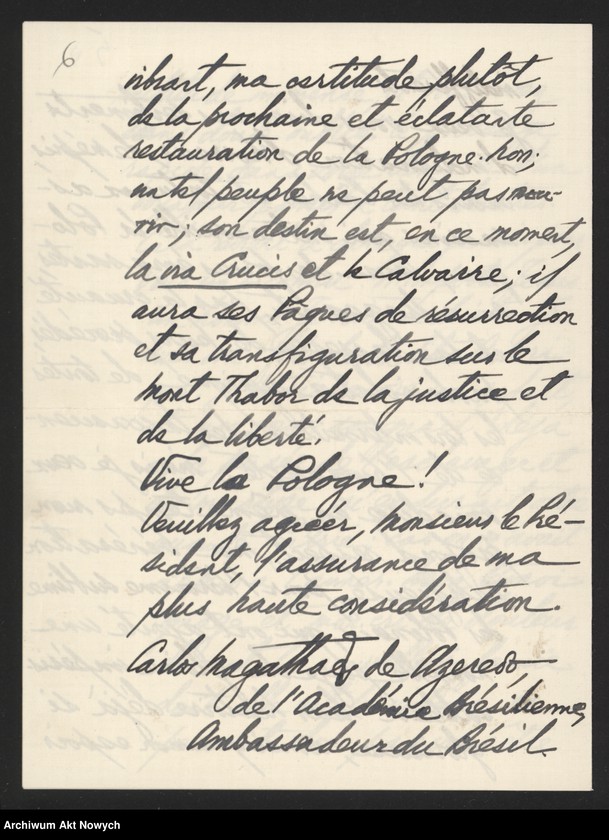 6
vibrant, ma certitude plutôt,
de la prochaine et éclatante
restauration de la Pologne. Non;
un tel peuple ne peut pas mou-
rir; son destin est, en ce moment,
la via Crucis et le Calvaire; il
aura ses Pâques de résurrection
et sa transfiguration sur le
mont Thabor de la justice et
de la liberté.
Vive la Pologne!
Veuillez agréer, Monsieur le Pré-
sident, l'assurance de ma
plus haute considération.
Carlos Magalhaes de Azeredo,
de l'Académie Brésilienne,
Ambassadeur du Brésil.
Archiwum Akt Nowych